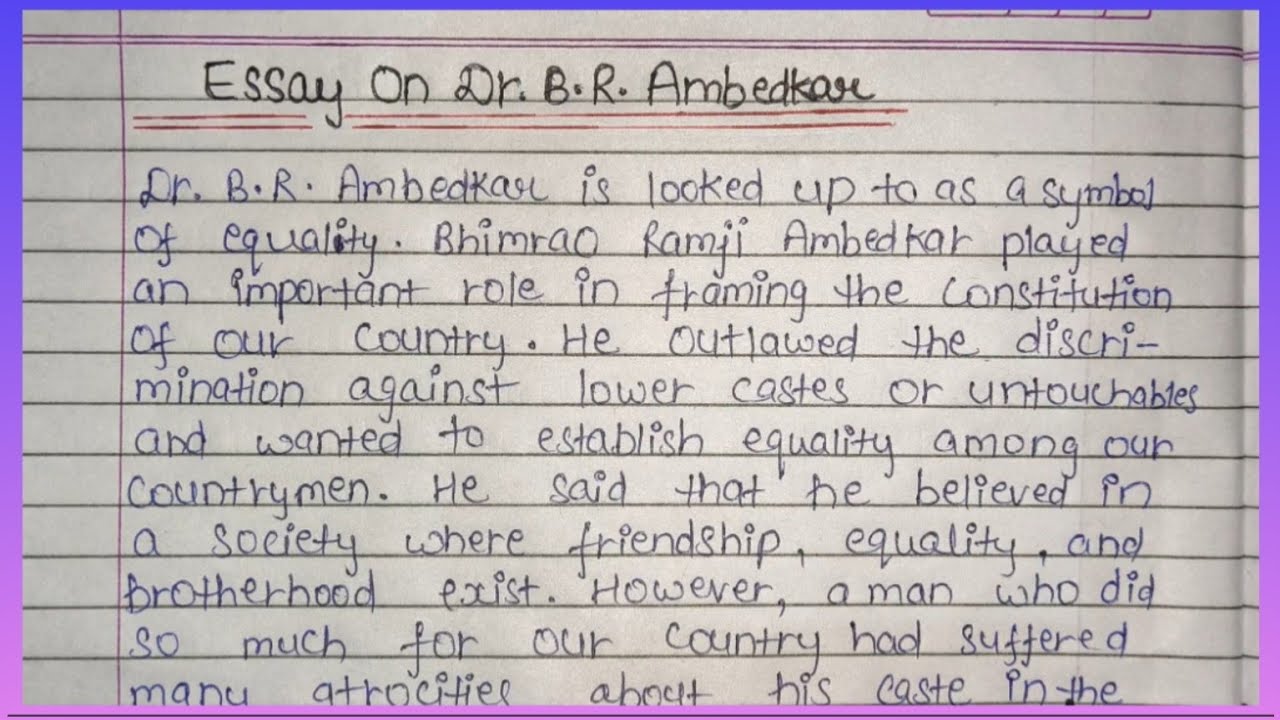 Essay On Dr. B.R. Ambedkar
Dr. B.R. Ambedkar is looked up to as a symbol
of equality. Bhimrao Ramji Ambedkar played
an important role in framing the constitution
of our country. He outlawed the discri-
mination against lower castes or untouchables
and wanted to establish equality among our
countrymen. He said that he believed in
a society where friendship, equality, and
brotherhood exist. However, a man who did
so much for our country had suffered
many atrocities about his caste in the